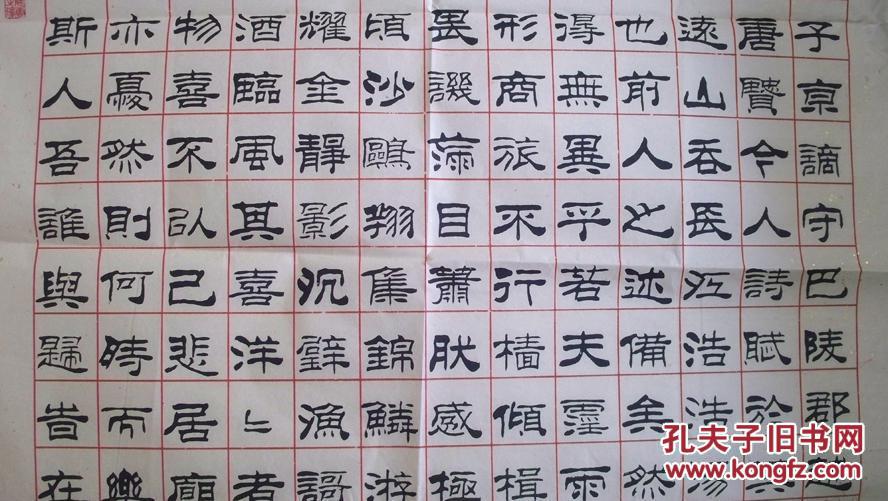 子京謫守巴陵郡越
唐賢今人詩賦於其
遠山吞長江浩浩湯
也前人之述備矣然
得無異乎若夫霪雨
形商旅不行檣傾楫
畏譏滿目蕭肰感極
頃沙鷗翔集錦鱗游
耀金靜影沉璧漁謌
酒臨風其喜洋〻者
物喜不以己悲居廟
亦憂然則何時而樂
斯人吾誰與歸旹在
孔夫子旧书网
www.kongfz.com